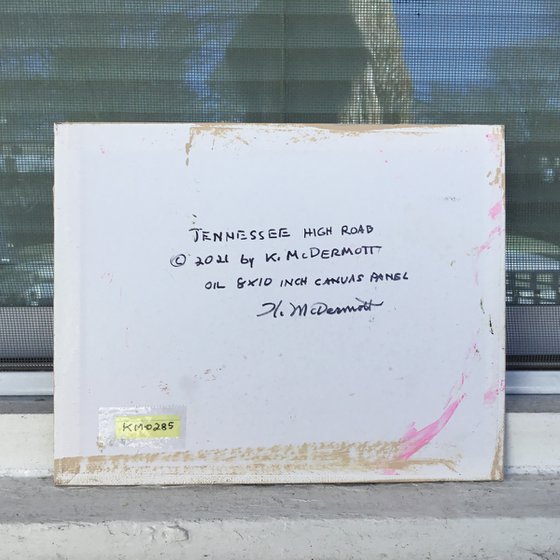 TENNESSEE HIGH ROAD
© 2021 by K. McDERMOTT
OIL 8X10 INCH CANVAS PANEL
K. McDermott
KM0285